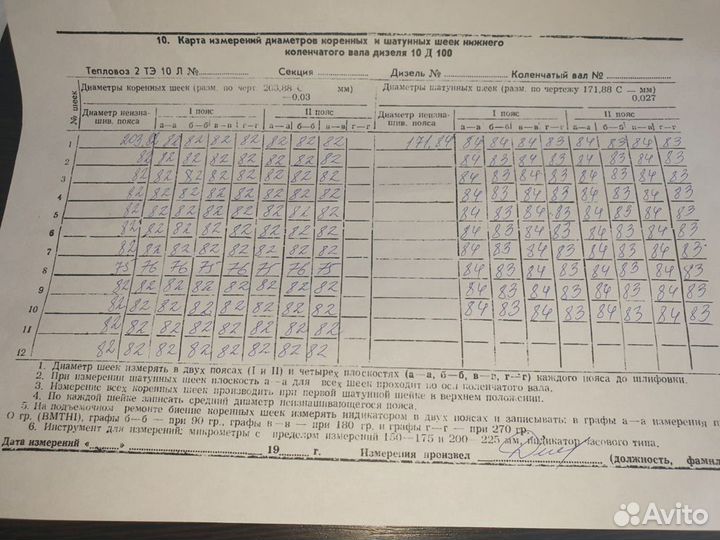 10. Карта измерений диаметров коренных и шатунных шеек нижнего
коленчатого вала дизеля 10 Д 100
Тепловоз 2 ТЭ 10 Л № Секция Дизель № Коленчатый вал №
№ шеек
Диаметры коренных шеек (разм. по черт. 203,88 С мм)
—0,03
Диаметры шатунных шеек (разм. по чертежу 171,88 С — мм)
0,027
Диаметр неизна-
шив. пояса
I пояс
II пояс
Диаметр неизна-
шив. пояса
I пояс
II пояс
а—а б—б в—в г—г а—а б—б в—в а—а б—б в—в г—г а—а б—б в—в г—г
1 203,82 82 82 82 82 82 82 82 171,84 84 84 84 83 84 83 84 83
2 82 82 82 82 82 82 82 82 84 83 84 83 84 83 84 83
3 82 82 82 82 82 82 82 82 84 83 84 83 84 83 84 83
4 82 82 82 82 82 82 82 82 84 83 84 83 84 83 84 83
5 82 82 82 82 82 82 82 82 84 83 84 83 84 83 84 83
6 82 82 82 82 82 82 82 82 84 83 84 83 84 83 84 83
7 82 82 82 82 82 82 82 82 84 83 84 83 84 83 84 83
8 75 76 76 75 76 75 76 75 84 83 84 83 84 83 84 83
9 82 82 82 82 82 82 82 82 84 83 84 83 84 83 84 83
10 82 82 82 82 82 82 82 82 84 83 84 83 84 83 84 83
11 82 82 82 82 82 82 82 82
12 82 82 82 82 82 82 82 82
1. Диаметр шеек измерять в двух поясах (I и II) и четырех плоскостях (а—а, б—б, в—в, г—г) каждого пояса до шлифовки.
2. При измерении шатунных шеек плоскость а—а для всех шеек проходит по оси коленчатого вала.
3. Измерение всех коренных шеек производить при первой шатунной шейке в верхнем положении.
4. По каждой шейке записать средний диаметр неизнашивающегося пояса.
5. На подъемочном ремонте биение коренных шеек измерять индикатором в двух поясах и записывать: в графы а—а измерения п
О гр. (ВМТНІ), графы б—б — при 90 гр., графы в—в — при 180 гр. и графы г—г — при 270 гр.
6. Инструмент для измерений: микрометры с пределом измерений 150—175 и 200—225 мм, индикатор часового типа.
Дата измерений « » 19 г. Измерения произвел (должность, фамил
Avito